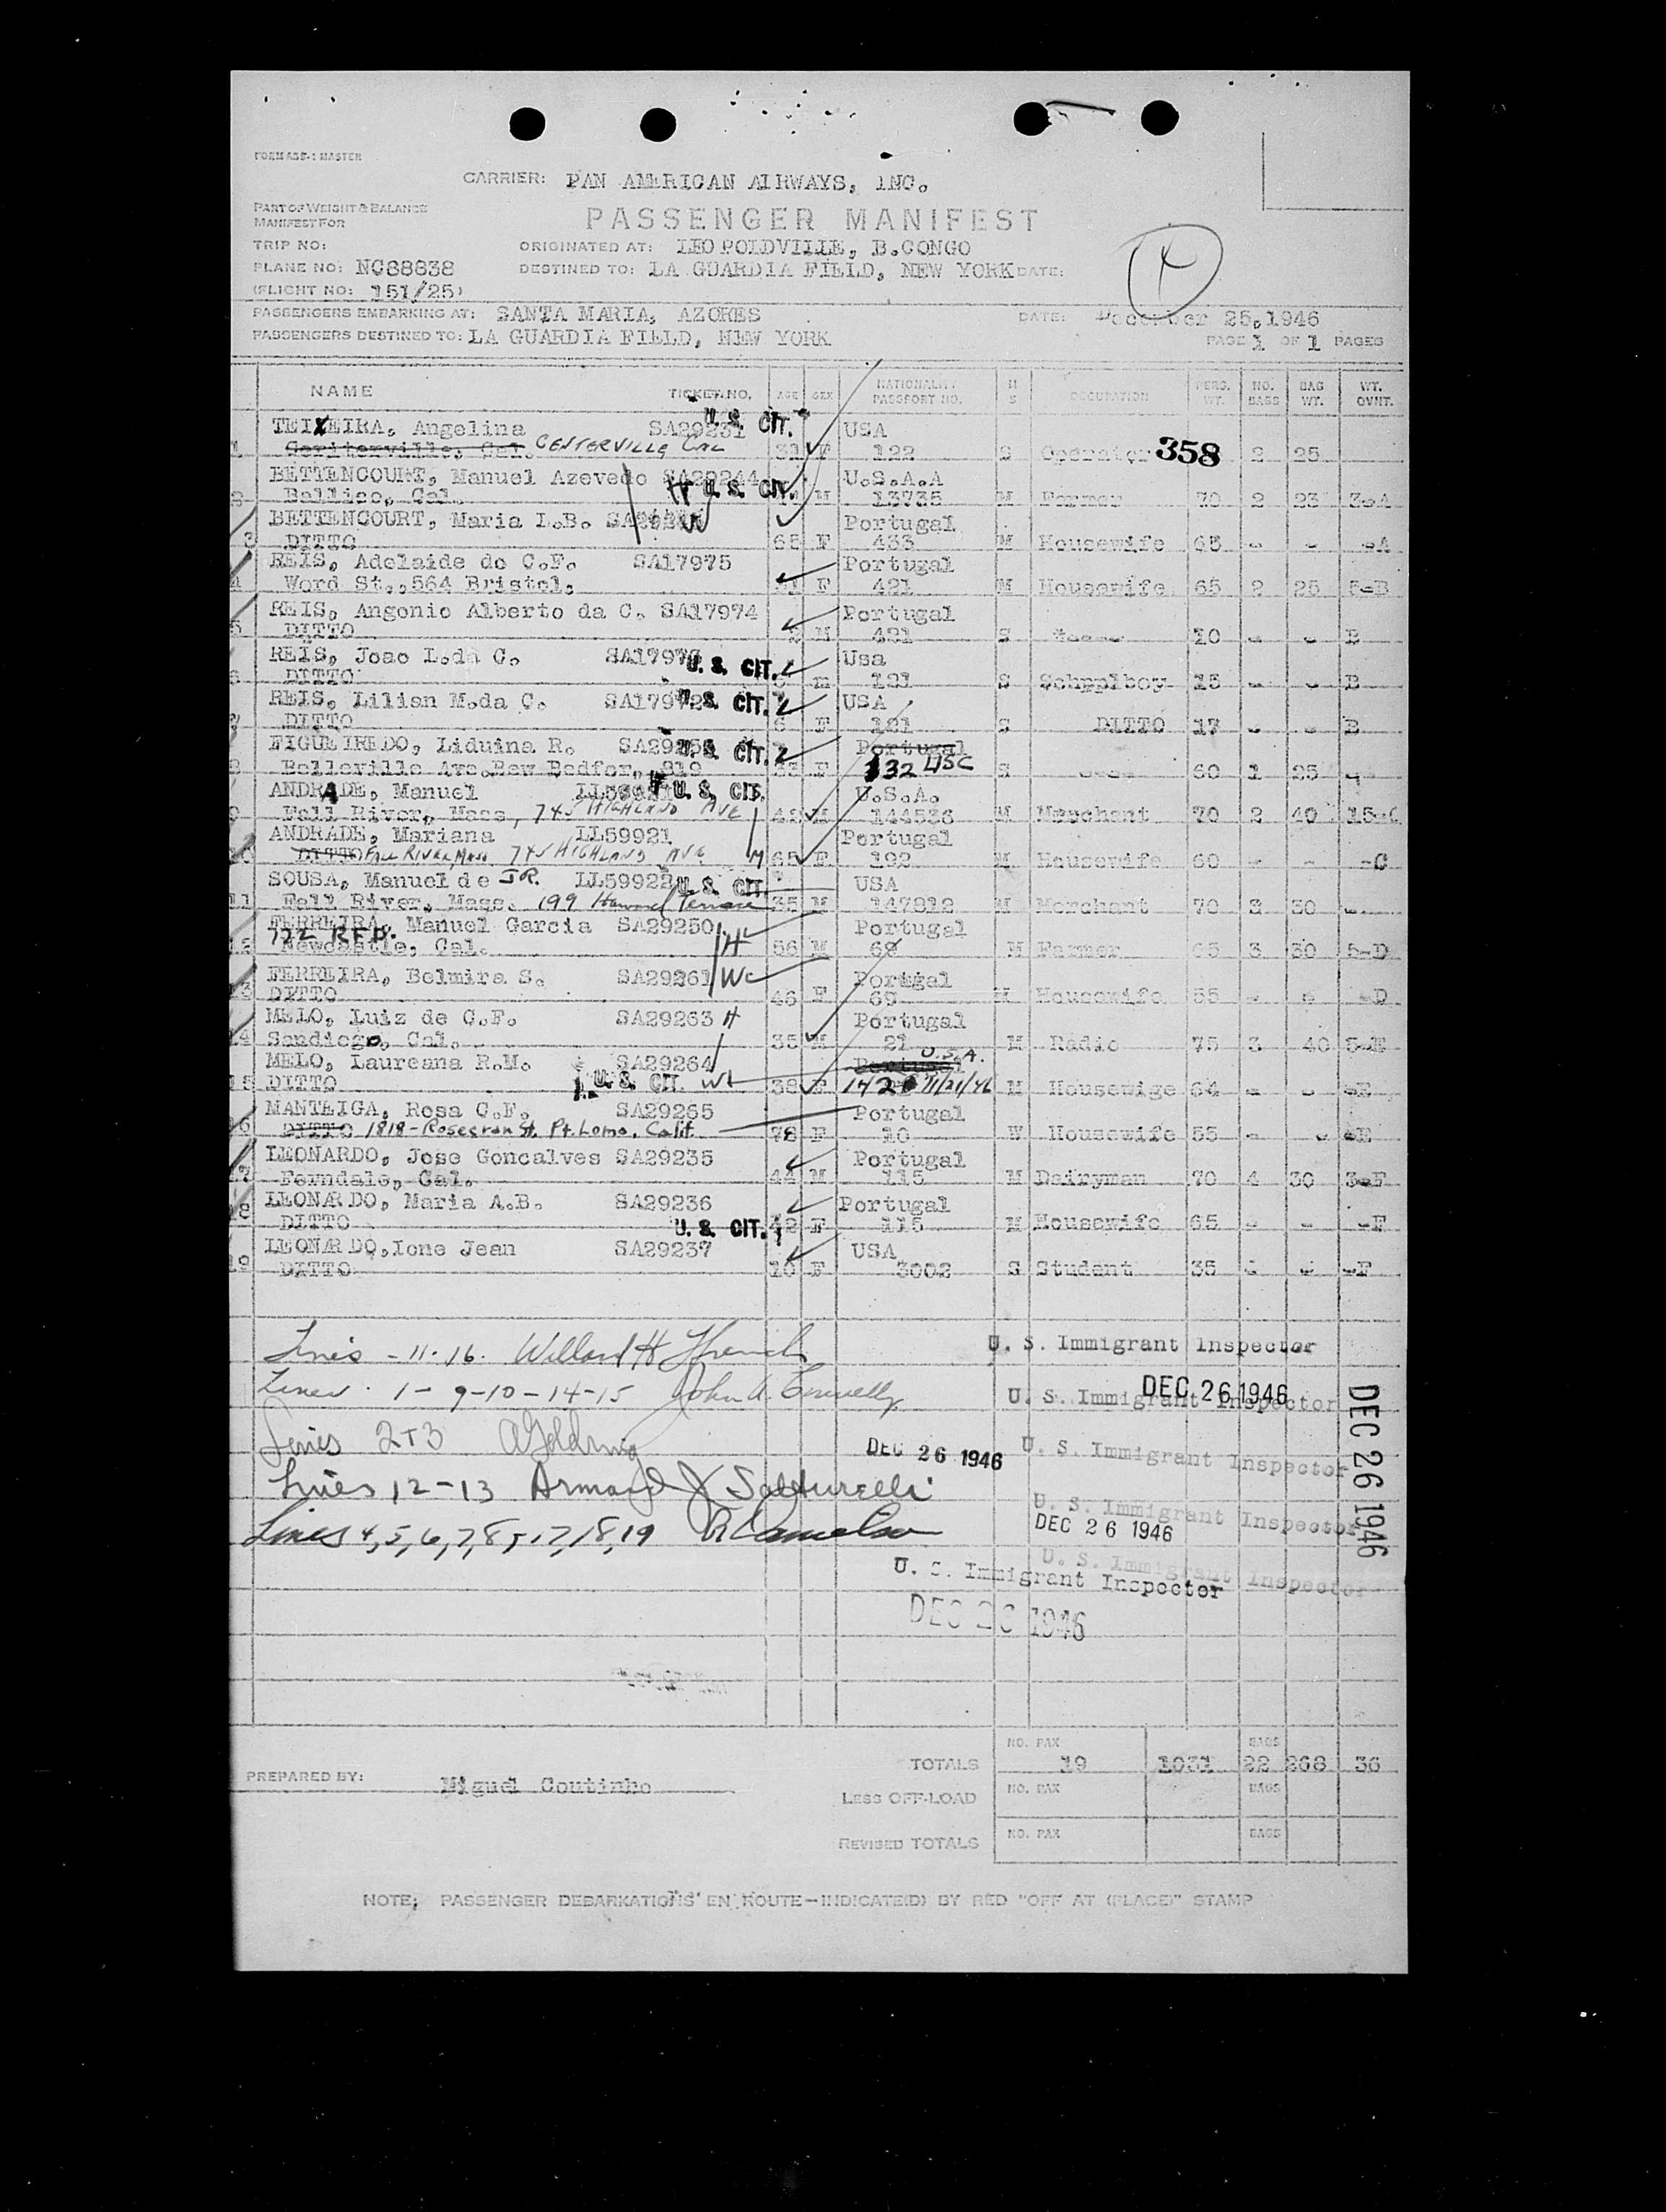 FORM ASD-1 MASTER
CARRIER: PAN AMERICAN AIRWAYS, INC.
PART OF WEIGHT & BALANCE
MANIFEST FOR
PASSENGER MANIFEST
TRIP NO:
ORIGINATED AT: LEOPOLDVILLE, B.CONGO
PLANE NO: NC88838
DESTINED TO: LA GUARDIA FIELD, NEW YORK DATE:
(FLIGHT NO: 151/25)
PASSENGERS EMBARKING AT: SANTA MARIA, AZORES DATE: December 25,1946
PASSENGERS DESTINED TO: LA GUARDIA FIELD, NEW YORK PAGE 1 OF 1 PAGES
NAME TICKET NO. AGE SEX NATIONALITY PASSPORT NO. M S OCCUPATION PERS. WT. NO. BAGS BAG WT. WT. OVNT.
TEIXEIRA, Angelina SA29231 U. S. CIT. USA
1 Centerville, Cal. CENTERVILLE CAL 31 F 122 S Operator 358 2 25
BETTENCOURT, Manuel Azevedo SA29244 U.S.A.A
2 Ballico, Cal. H U. S. CIT. M 13735 M Farmer 70 2 23 3-A
BETTENCOURT, Maria L.B. W Portugal
3 DITTO 65 F 433 M Housewife 65 - - -A
REIS, Adelaide do C.F. SA17975 Portugal
4 Word St.,564 Bristol, F 421 M Housewife 65 2 25 5-B
REIS, Angonio Alberto da C. SA17974 Portugal
5 DITTO 2 M 421 S 10 - - B
REIS, Joao L.da C. U. S. CIT. Usa
6 DITTO m 121 S Schpplboy 15 - - B
REIS, Lilian M.da C. SA17972 U. S. CIT. USA
7 DITTO 6 F 121 S DITTO 17 - - B
FIGUEIREDO, Liduina R. U. S. CIT. Portugal
8 Belleville Ave.New Bedfor, 819 F 132 USC S 60 1 25 -
ANDRADE, Manuel H U. S. CIT. U.S.A.
9 Fall River, Mass, 745 HIGHLAND AVE 42 M 144536 M Merchant 70 2 40 15-C
ANDRADE, Mariana LL59921 Portugal
10 DITTO FALL RIVER, MASS 745 HIGHLAND AVE 65 F 192 M Housewife 60 - - -C
SOUSA, Manuel de JR. LL59922 U. S. CIT. USA
11 Fall River, Mass. 199 Terrace 35 M 147812 M Merchant 70 2 30 -
FERREIRA, Manuel Garcia SA29250 Portugal
172 RFD.
12 Newcastle, Cal. H 56 M 69 M Farmer 65 3 30 5-D
FERREIRA, Belmira S. SA29261 W Portugal
13 DITTO 46 F 69 M Housewife 55 - - -D
MELO, Luiz de C.F. SA29263 H Portugal
14 Sandiego, Cal. 35 M 21 M Radio 75 3 40 5-E
MELO, Laureana R.M. SA29264 Portugal U.S.A.
15 DITTO U. S. CIT. W 38 F 11/21/46 M Housewige 64 - - -E
MANTEIGA, Rosa C.F. SA29265 Portugal
16 DITTO 1818-Rosecran St. Pt. Loma, Calif 78 F 10 W Housewife 55 - - -E
LEONARDO, Jose Goncalves SA29235 Portugal
17 Ferndale, Cal. 44 M 115 M Dairyman 70 4 30 3-F
LEONARDO, Maria A.B. SA29236 Portugal
18 DITTO 42 F 115 M Housewife 65 - - -F
U. S. CIT.
LEONARDO,Ione Jean SA29237 USA
19 DITTO 10 F 3002 S Student 35 - - -F
Lines -11-16. Willard H French U. S. Immigrant Inspector
Lines. 1-9-10-14-15 John A. Connelly U. S. Immigrant Inspector
DEC 26 1946
Lines 2+3 U. S. Immigrant Inspector
DEC 26 1946
DEC 26 1946
Lines 12-13 Armand J U. S. Immigrant Inspector
DEC 26 1946
Lines 4,5,6,7,8,17,18,19
U. S. Immigrant Inspector
U. S. Immigrant Inspector
DEC 26 1946
TOTALS NO. PAX 19 1031 BAGS 22 268 36
PREPARED BY: Miguel Coutinho
LESS OFF-LOAD NO. PAX BAGS
REVISED TOTALS NO. PAX BAGS
NOTE; PASSENGER DEBARKATIONS EN ROUTE-INDICATE(D) BY RED "OFF AT (PLACE)" STAMP